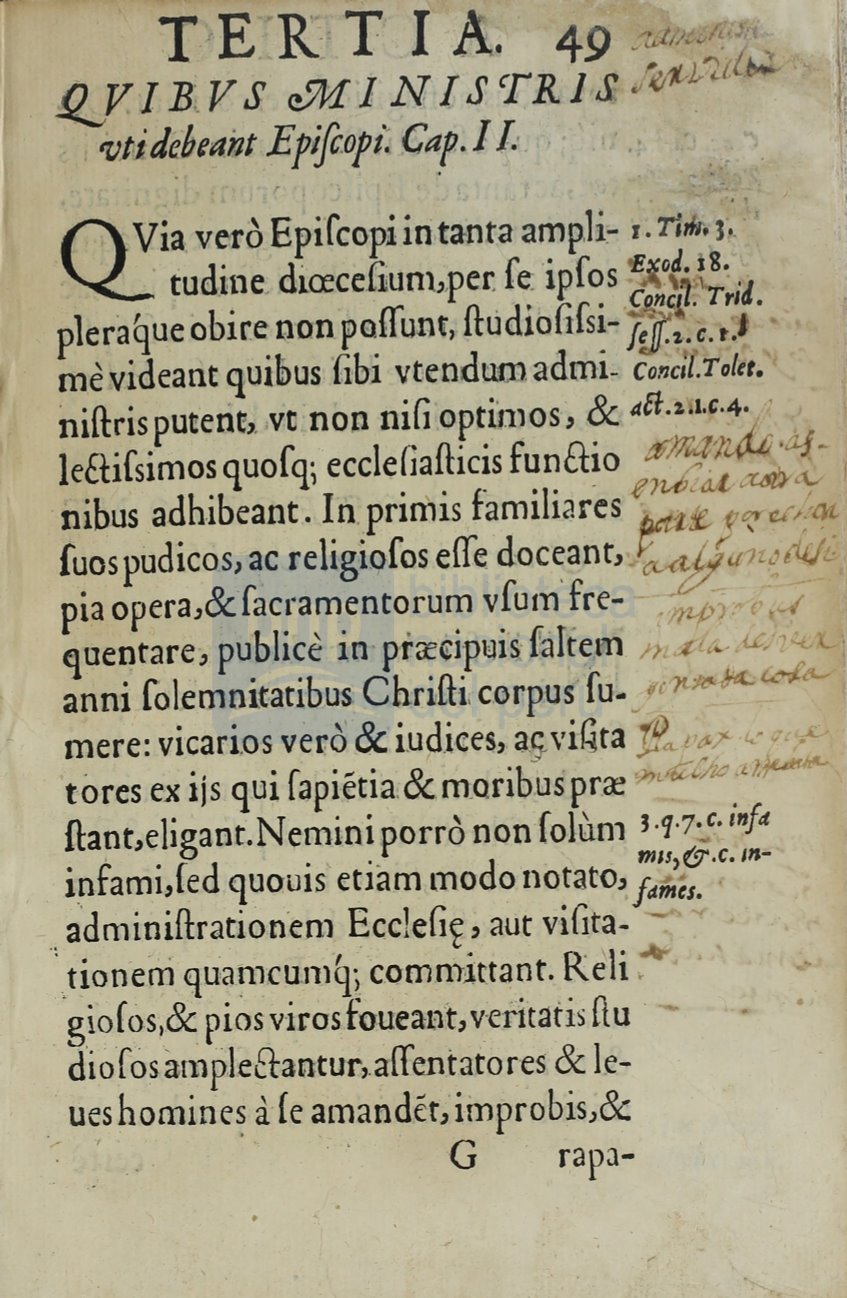 TERTIA. 49
QVIBVS MINISTRIS
vti debeant Epiſcopi. Cap. II.
QVia verò Epiſcopi in tanta ampli-
tudine diœceſium, per ſe ipſos
pleraq́ue obire non poſſunt, ſtudioſiſsi-
mè videant quibus ſibi vtendum admi-
niſtris putent, vt non niſi optimos, &
lectiſsimos quoſq; eccleſiaſticis functio
nibus adhibeant. In primis familiares
ſuos pudicos, ac religioſos eſſe doceant,
pia opera, & ſacramentorum vſum fre-
quentare, publicè in præcipuis ſaltem
anni ſolemnitatibus Chriſti corpus ſu-
mere: vicarios verò & iudices, aç viſita
tores ex ijs qui ſapiētia & moribus præ
ſtant, eligant. Nemini porrò non ſolùm
infami, ſed quouis etiam modo notato,
adminiſtrationem Eccleſię, aut viſita-
tionem quamcumq́; committant. Reli
gioſos, & pios viros foueant, veritatis ſtu
dioſos amplectantur, aſſentatores & le-
ues homines à ſe amandēt, improbis, &
G rapa-
1. Tim. 3.
Exod. 18.
Concil. Trid.
ſeſſ. 2. c. 1.
Concil. Tolet.
act. 2. 1. c. 4.
3. q. 7. c. infa
mis, &. c. in-
fames.